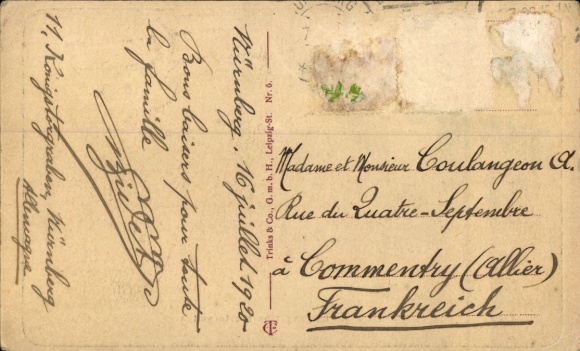 Nürnberg, 16 juillet 1920
Bons baisers pour toute
la famille
11, Königstorgraben, Nürnberg
Allemagne
Trinks & Co., G. m. b. H., Leipzig-St. Nr. 6.
Madame et Monsieur Coulangeon A.
Rue du Quatre-Septembre
à Commentry (Allier)
Frankreich